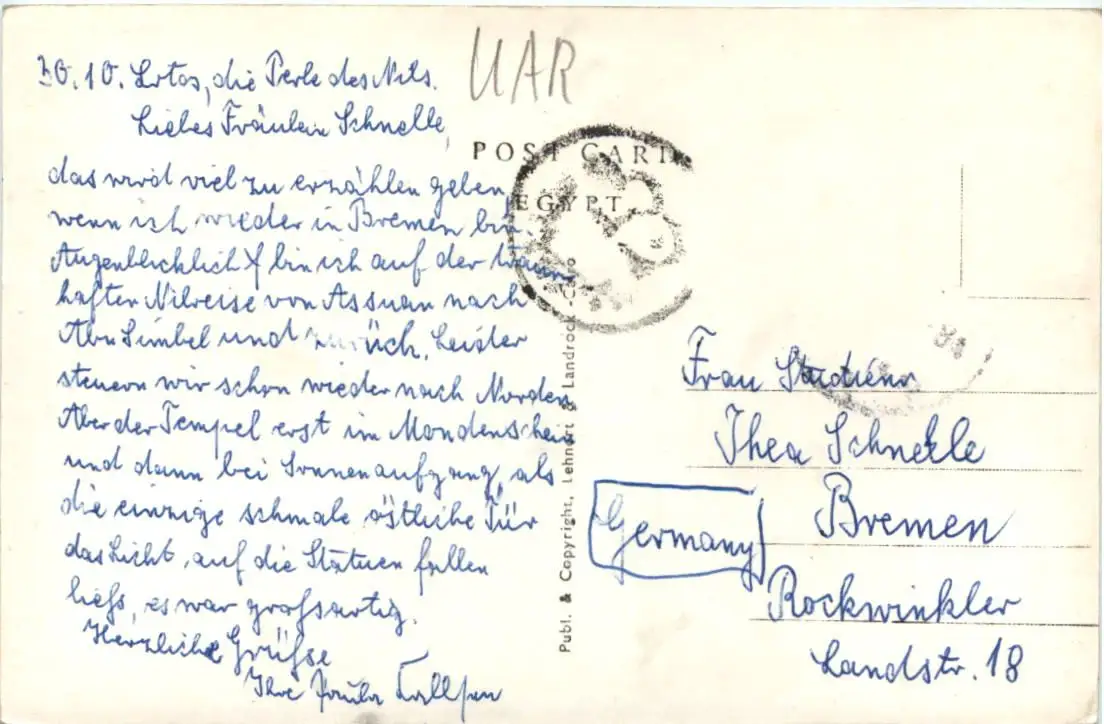 30.10. Lotos, die Perle des Nils.
Liebes Fräulein Schnelle,
das wird viel zu erzählen geben,
wenn ich wieder in Bremen bin.
Augenblicklich bin ich auf der traum-
haften Nilreise von Assuan nach
Abu Simbel und zurück. Leider
steuern wir schon wieder nach Norden.
Aber der Tempel erst im Mondenschein
und dann bei Sonnenaufgang, als
die einzige schmale östliche Tür
das Licht, auf die Statuen fallen
liess, es war grossartig.
Herzliche Grüsse
Ihre Paula
UAR
POST CARD
EGYPT
Publ. & Copyright, Lehnert & Landrock-Cairo
Frau
Thea Schnelle
Bremen
Germany
Rockwinkler
Landstr. 18